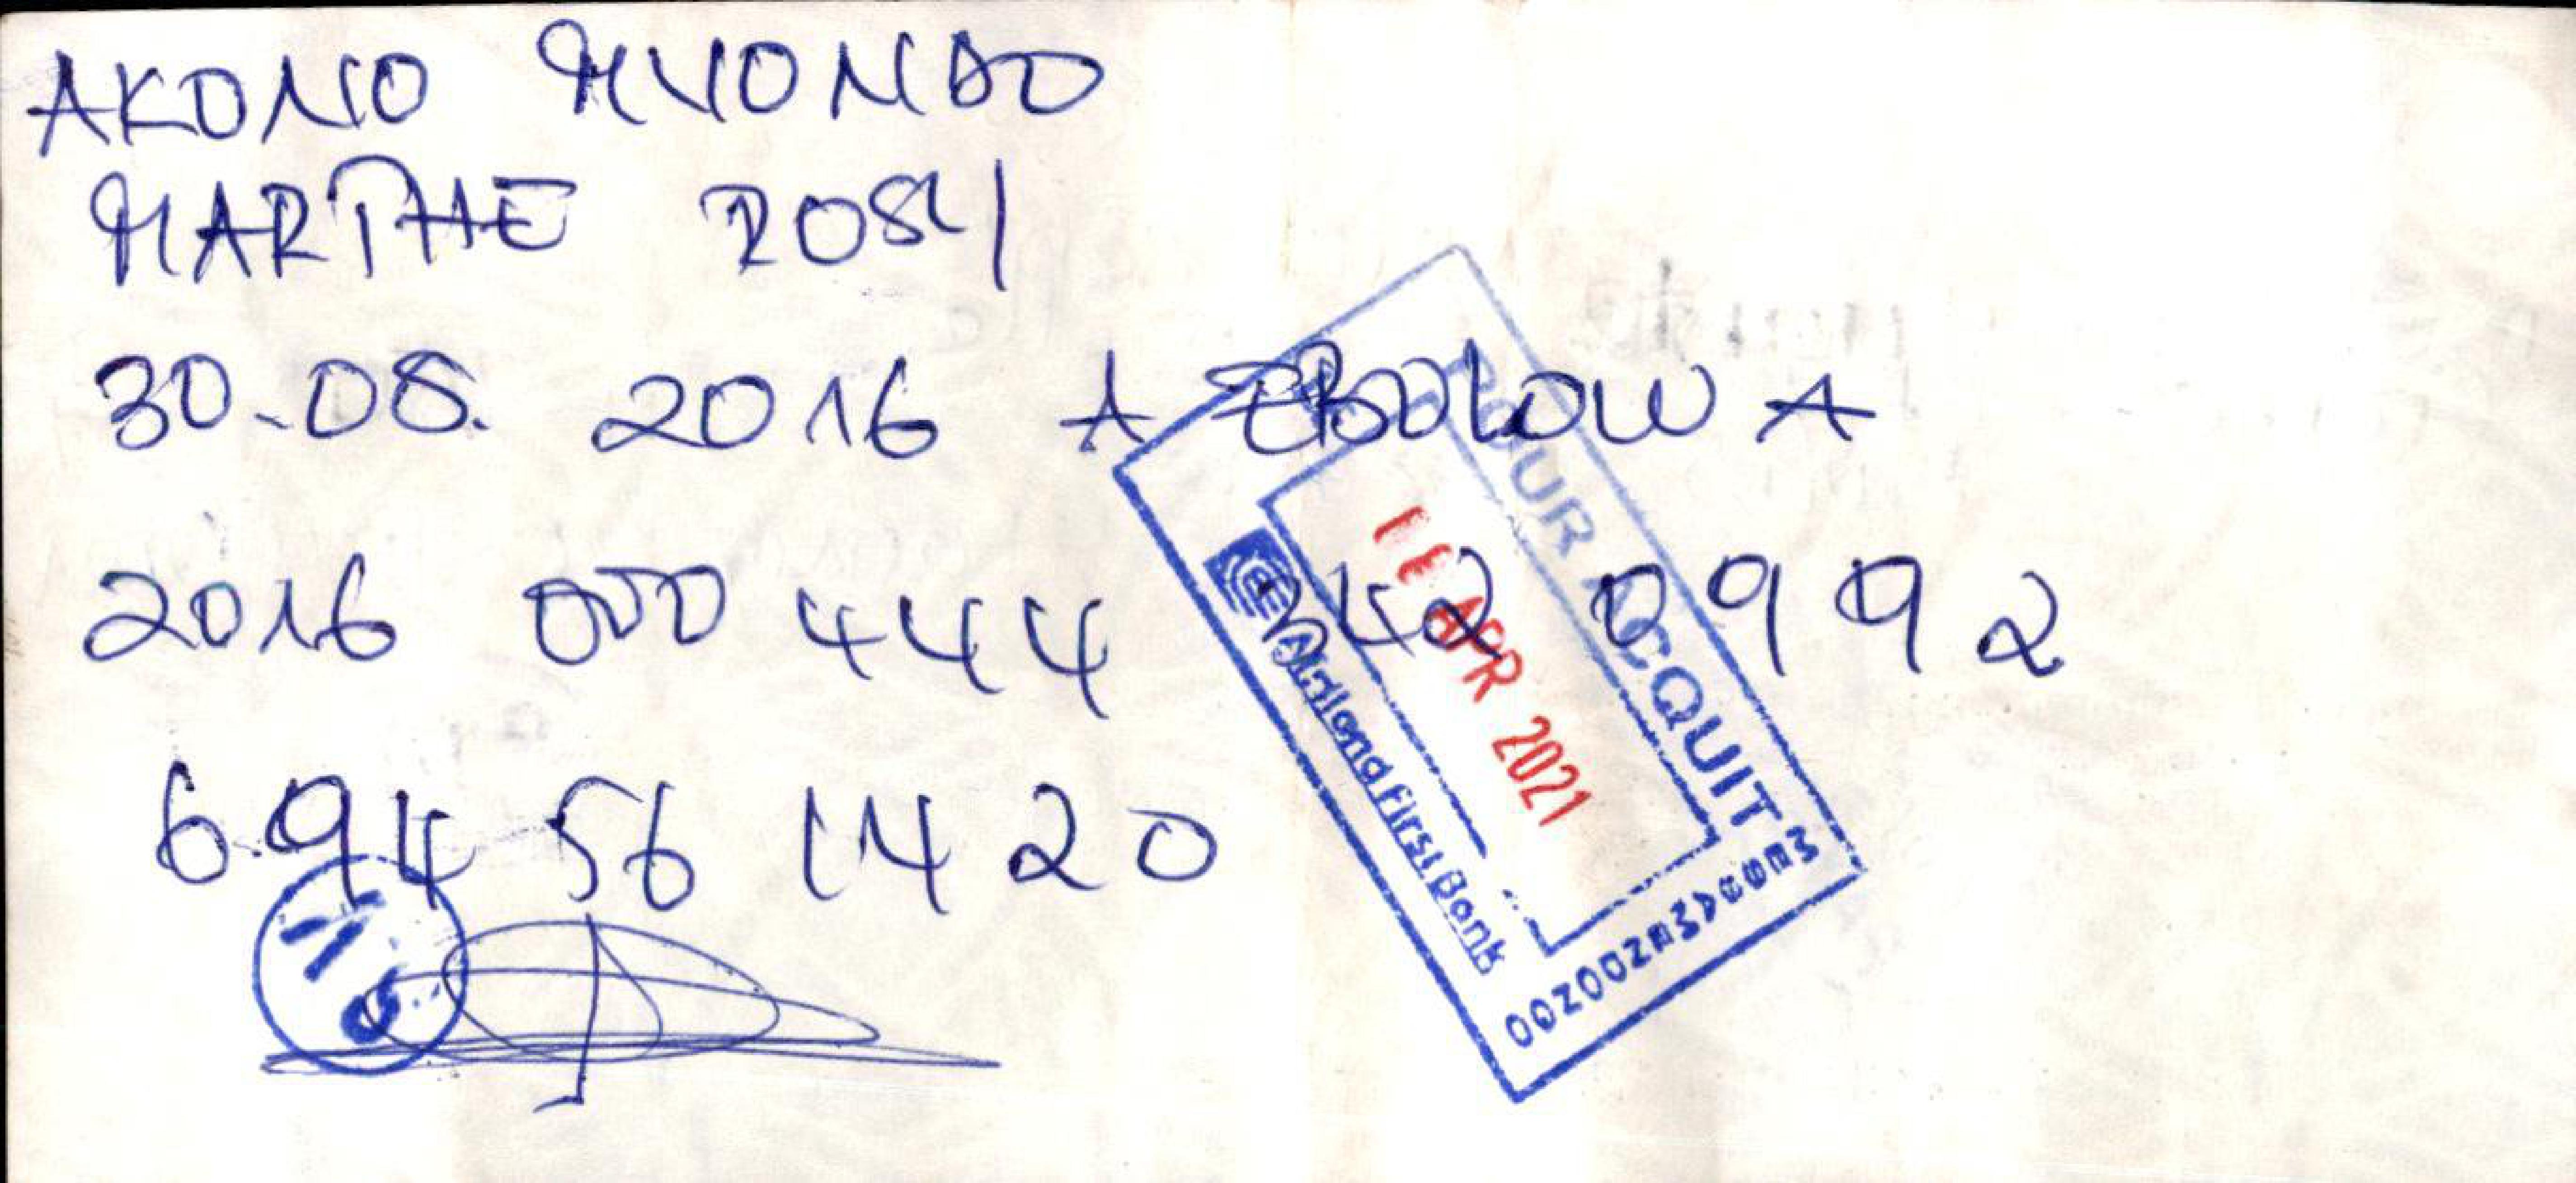 AKONO MVONDO
MARTHE ROSY
30.08. 2016 A EBOLOWA
2016 000 444 342 0992
694 56 14 20
POUR ACQUIT
APR 2021
Afriland First Bank